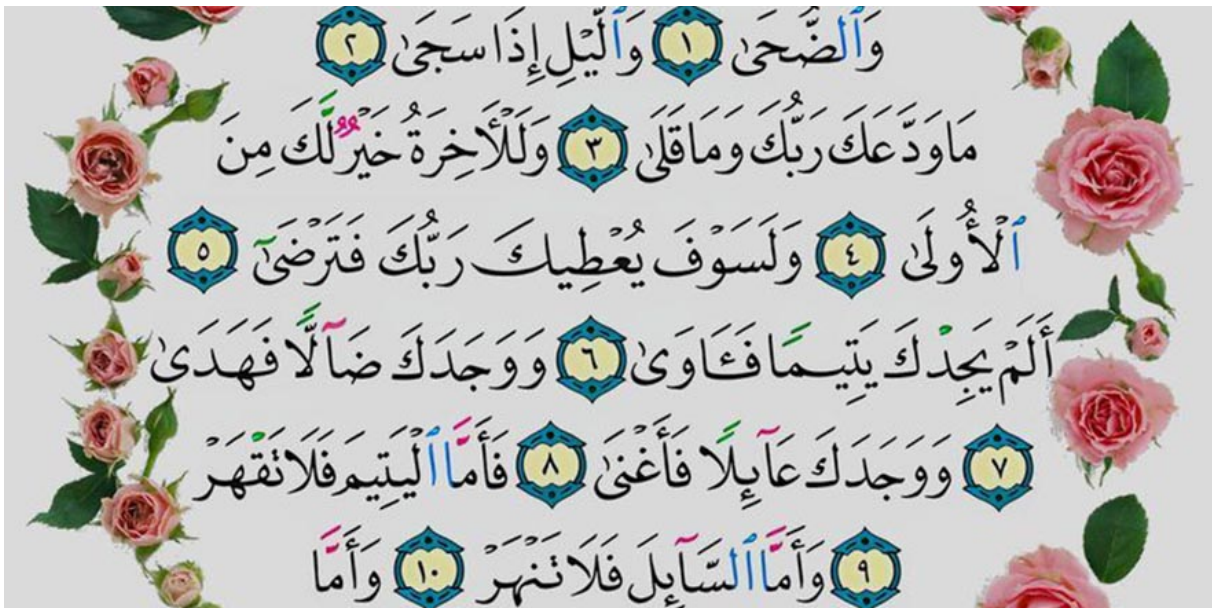 وَٱلضُّحَىٰ ١ وَٱلَّيۡلِ إِذَا سَجَىٰ ٢
مَا وَدَّعَكَ رَبُّكَ وَمَا قَلَىٰ ٣ وَلَلۡأٓخِرَةُ خَيۡرٞ لَّكَ مِنَ
ٱلۡأُولَىٰ ٤ وَلَسَوۡفَ يُعۡطِيكَ رَبُّكَ فَتَرۡضَىٰٓ ٥
أَلَمۡ يَجِدۡكَ يَتِيمٗا فَـَٔاوَىٰ ٦ وَوَجَدَكَ ضَآلّٗا فَهَدَىٰ
٧ وَوَجَدَكَ عَآئِلٗا فَأَغۡنَىٰ ٨ فَأَمَّا ٱلۡيَتِيمَ فَلَا تَقۡهَرۡ
٩ وَأَمَّا ٱلسَّآئِلَ فَلَا تَنۡهَرۡ ١٠ وَأَمَّا